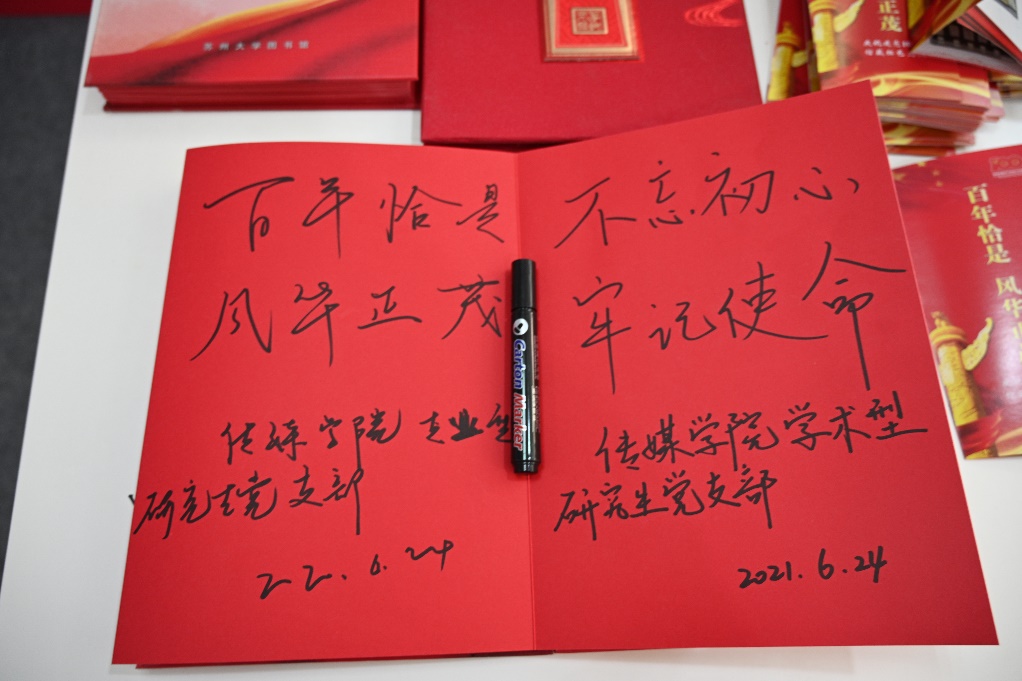 苏州大学图书馆
正茂
百年恰是
风华正茂
传媒学院专业型
研究生党支部
不忘初心
牢记使命
传媒学院学术型
研究生党支部
2021.6.24
Carton Marker
百年恰是 风华正